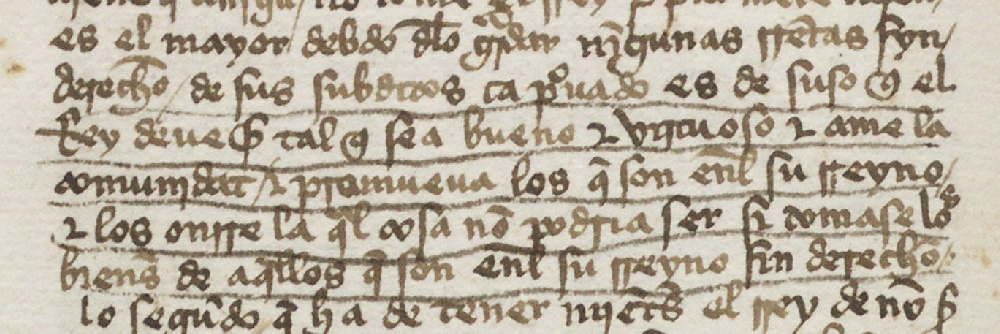 es el mayor debdo dlo gͣrdar nīgunas rrētas syn
derecho / de sus subditos ca pͦuado es de suso q̄ el
Rey deue sr̄ tal q̄ sea bueno ⁊ vyrtuoso ⁊ ame la
comunidat / ⁊ promueua los q̄ son enl̄ su rreyno /
⁊ los onrre la ql̄ cosa nō podria ser si tomase los
bienēs de aqllos q̄ son enl̄ su rreyno sin derecho
lo segūdo q̄ ha de tener mīets̄ el rrey de nō